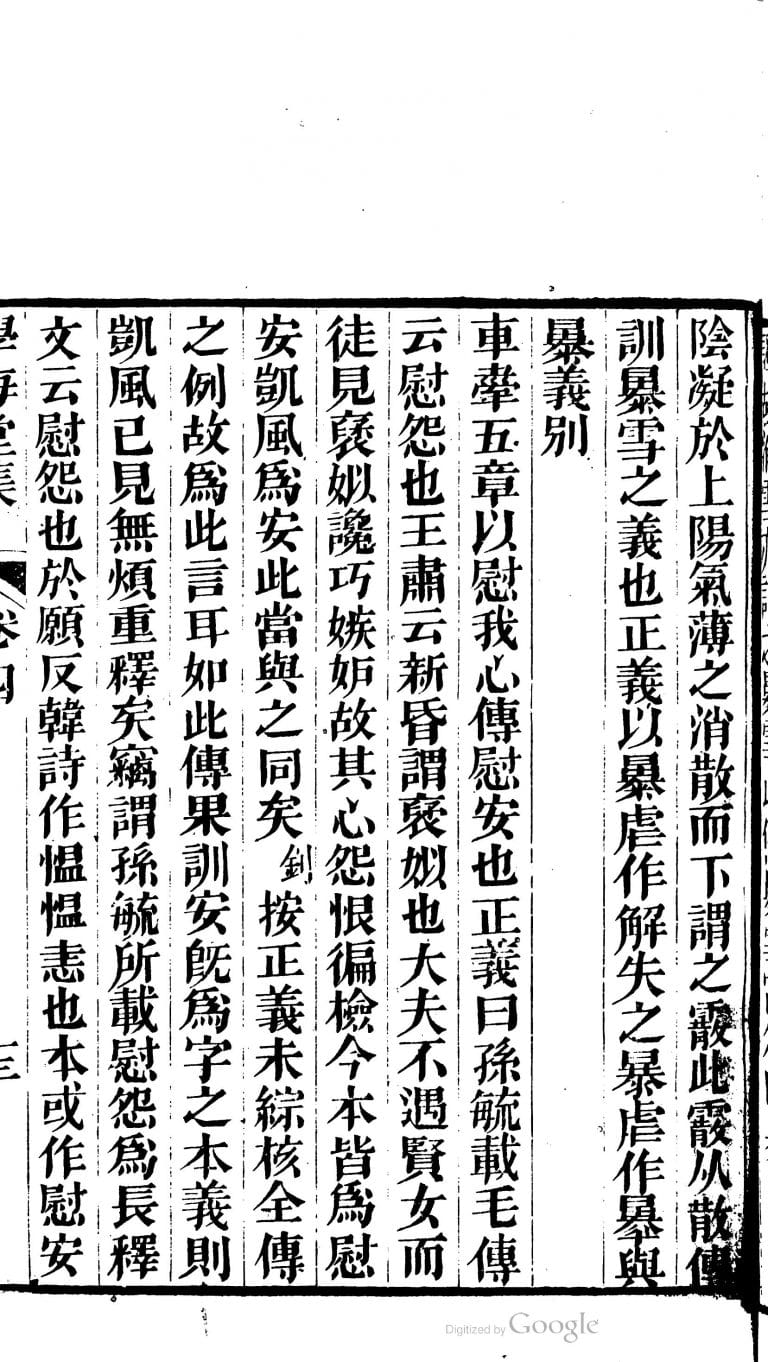 陰凝於上陽氣薄之消散而下謂之霰此霰从散傳
訓暴雪之義也正義以暴虐作解失之暴虐作㬥與
暴義别
車舝五章以慰我心傳慰安也正義曰孫毓載毛傳
云慰怨也王肅云新昏謂褒姒也大夫不遇賢女而
徒見褒姒讒巧嫉妒故其心怨恨徧檢今本皆爲慰
安凱風爲安此當與之同矣 釗 按正義未綜核全傳
之例故爲此言耳如此傳果訓安旣爲字之本義則
凱風已見無煩重釋矣竊謂孫毓所載慰怨爲長釋
文云慰怨也於願反韓詩作慍慍恚也本或作慰安
學海堂集 卷四 三
Digitized by Google